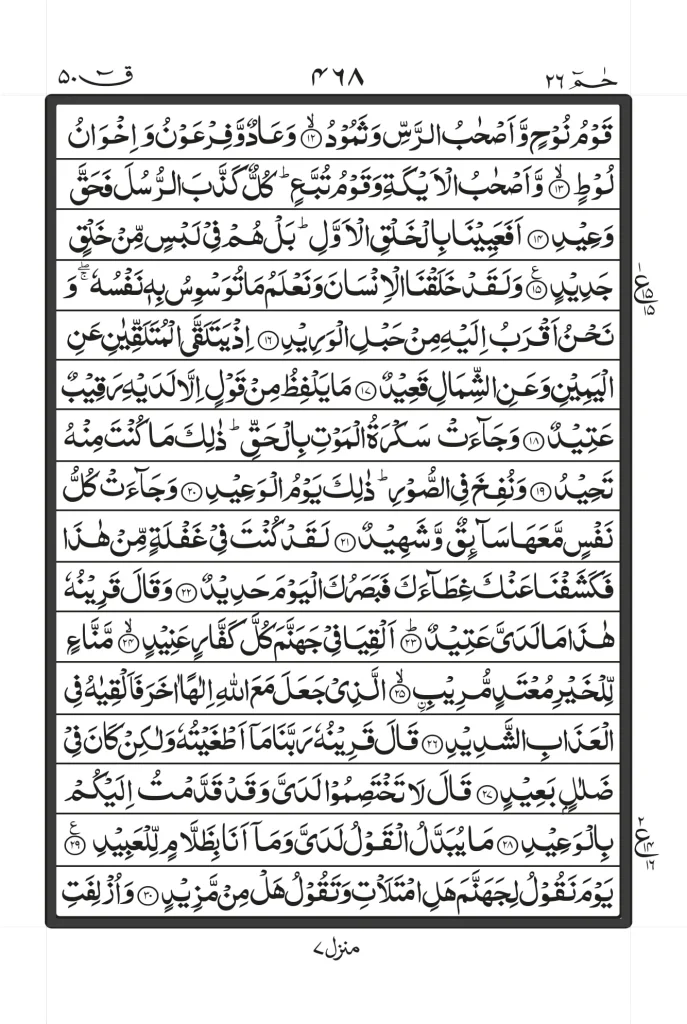 قٓ ۵۰ ۴۶۸ حٰمٓ ۲۶
قَوْمُ نُوْحٍ وَّاَصْحٰبُ الرَّسِّ وَثَمُوْدُ ۙ﴿۱۲﴾ وَعَادٌ وَّفِرْعَوْنُ وَاِخْوَانُ
لُوْطٍ ۙ﴿۱۳﴾ وَّاَصْحٰبُ الْاَيْكَةِ وَقَوْمُ تُبَّعٍ ؕ كُلٌّ كَذَّبَ الرُّسُلَ فَحَقَّ
وَعِيْدِ ﴿۱۴﴾ اَفَعَيِيْنَا بِالْخَلْقِ الْاَوَّلِ ؕ بَلْ هُمْ فِيْ لَبْسٍ مِّنْ خَلْقٍ
جَدِيْدٍ ﴿۱۵﴾ع وَلَقَدْ خَلَقْنَا الْاِنْسَانَ وَنَعْلَمُ مَا تُوَسْوِسُ بِهٖ نَفْسُهٗ ۚۖ وَ
ع ۱ ۱۵ ۱۵
نَحْنُ اَقْرَبُ اِلَيْهِ مِنْ حَبْلِ الْوَرِيْدِ ﴿۱۶﴾ اِذْ يَتَلَقَّى الْمُتَلَقِّيٰنِ عَنِ
الْيَمِيْنِ وَعَنِ الشِّمَالِ قَعِيْدٌ ﴿۱۷﴾ مَا يَلْفِظُ مِنْ قَوْلٍ اِلَّا لَدَيْهِ رَقِيْبٌ
عَتِيْدٌ ﴿۱۸﴾ وَجَآءَتْ سَكْرَةُ الْمَوْتِ بِالْحَقِّ ؕ ذٰلِكَ مَا كُنْتَ مِنْهُ
تَحِيْدُ ﴿۱۹﴾ وَنُفِخَ فِي الصُّوْرِ ؕ ذٰلِكَ يَوْمُ الْوَعِيْدِ ﴿۲۰﴾ وَجَآءَتْ كُلُّ
نَفْسٍ مَّعَهَا سَآئِقٌ وَّشَهِيْدٌ ﴿۲۱﴾ لَقَدْ كُنْتَ فِيْ غَفْلَةٍ مِّنْ هٰذَا
فَكَشَفْنَا عَنْكَ غِطَآءَكَ فَبَصَرُكَ الْيَوْمَ حَدِيْدٌ ﴿۲۲﴾ وَقَالَ قَرِيْنُهٗ
هٰذَا مَا لَدَيَّ عَتِيْدٌ ؕ﴿۲۳﴾ اَلْقِيَا فِيْ جَهَنَّمَ كُلَّ كَفَّارٍ عَنِيْدٍ ۙ﴿۲۴﴾ مَّنَّاعٍ
لِّلْخَيْرِ مُعْتَدٍ مُّرِيْبِ ۙ﴿۲۵﴾ ۨالَّذِيْ جَعَلَ مَعَ اللّٰهِ اِلٰهًا اٰخَرَ فَاَلْقِيٰهُ فِي
الْعَذَابِ الشَّدِيْدِ ﴿۲۶﴾ قَالَ قَرِيْنُهٗ رَبَّنَا مَاۤ اَطْغَيْتُهٗ وَلٰكِنْ كَانَ فِيْ
ضَلٰلٍۭ بَعِيْدٍ ﴿۲۷﴾ قَالَ لَا تَخْتَصِمُوْا لَدَيَّ وَقَدْ قَدَّمْتُ اِلَيْكُمْ
بِالْوَعِيْدِ ﴿۲۸﴾ مَا يُبَدَّلُ الْقَوْلُ لَدَيَّ وَمَاۤ اَنَا بِظَلَّامٍ لِّلْعَبِيْدِ ﴿۲۹﴾ع
ع ۲ ۱۴ ۱۶
يَوْمَ نَقُوْلُ لِجَهَنَّمَ هَلِ امْتَلَاْتِ وَتَقُوْلُ هَلْ مِنْ مَّزِيْدٍ ﴿۳۰﴾ وَاُزْلِفَتِ
منزل ۷